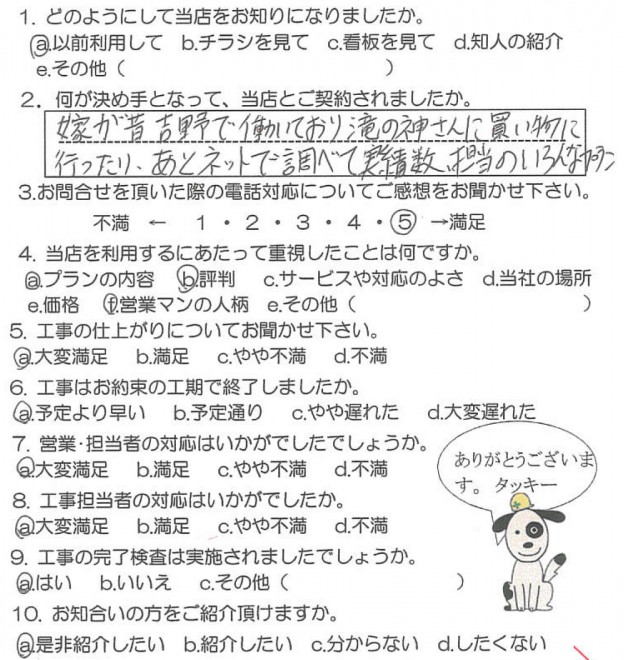 1. どのようにして当店をお知りになりましたか。
a.以前利用して b.チラシを見て c.看板を見て d.知人の紹介
e.その他（ ）
2. 何が決め手となって、当店とご契約されましたか。
嫁が昔吉野で働いており滝の神さんに買い物に
行ったり、あとネットで調べて実績数、担当のいろんなプラン
3.お問合せを頂いた際の電話対応についてご感想をお聞かせ下さい。
不満 ← 1・2・3・4・5 →満足
4. 当店を利用するにあたって重視したことは何ですか。
a.プランの内容 b.評判 c.サービスや対応のよさ d.当社の場所
e.価格 f.営業マンの人柄 e.その他（ ）
5. 工事の仕上がりについてお聞かせ下さい。
a.大変満足 b.満足 c.やや不満 d.不満
6. 工事はお約束の工期で終了しましたか。
a.予定より早い b.予定通り c.やや遅れた d.大変遅れた
7. 営業・担当者の対応はいかがでしたでしょうか。
a.大変満足 b.満足 c.やや不満 d.不満
8. 工事担当者の対応はいかがでしたか。
a.大変満足 b.満足 c.やや不満 d.不満
9. 工事の完了検査は実施されましたでしょうか。
a.はい b.いいえ c.その他（ ）
10. お知合いの方をご紹介頂けますか。
a.是非紹介したい b.紹介したい c.分からない d.したくない
ありがとうございま
す。 タッキー